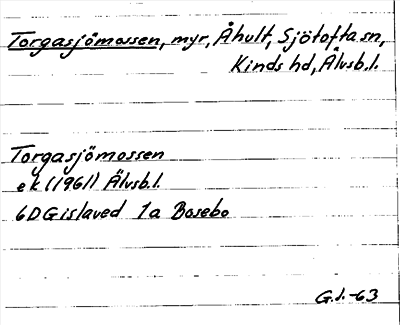 Torgasjömossen, myr, Åhult, Sjötofta sn,
Kinds hd, Älvsb.l.
Torgasjömossen
ek (1961) Älvsb.l.
6D Gislaved 1a Bosebo
G.J.-63